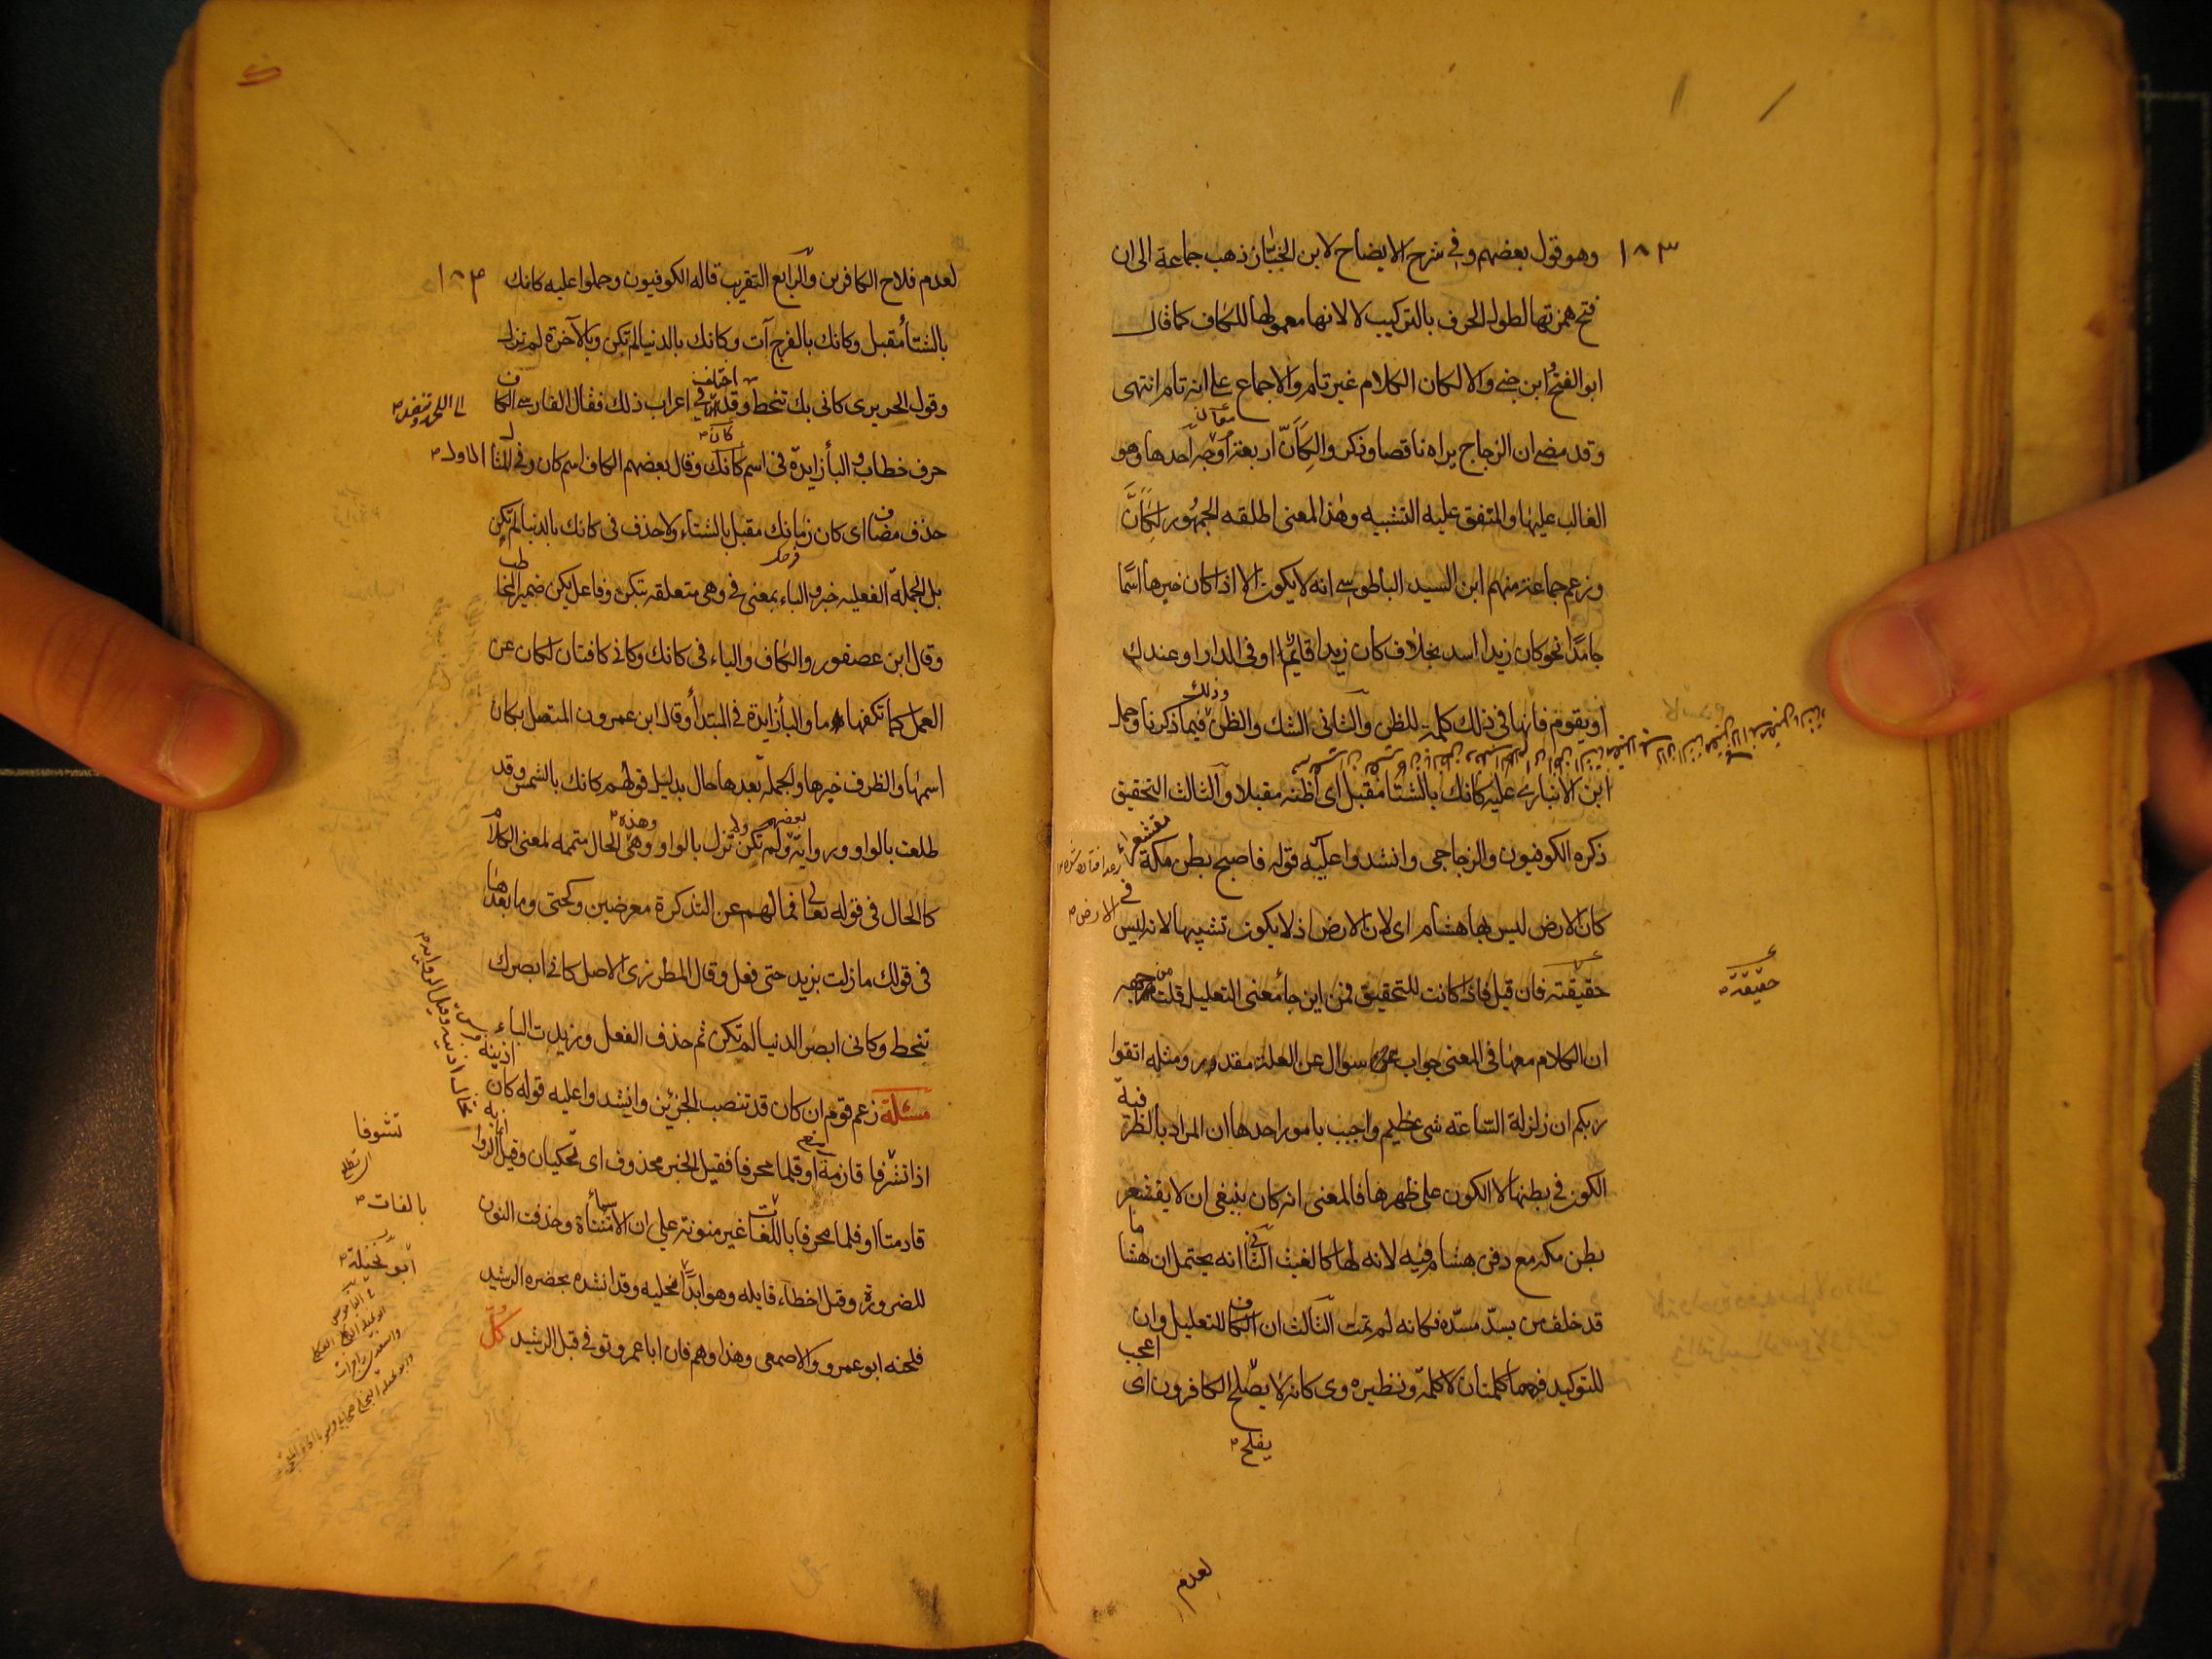 ١٨٣
وهو قول بعضهم وفي شرح الايضاح لابن الخباز ذهب جماعة الى ان
فتح همزتها لطول الحرف بالتركيب لا لانها معمولها للكاف كما قال
ابو الفتح ابن جنى والا لكان الكلام غير تام والاجماع على انه تام انتهى
وقد مضى ان الزجاج يراه ناقصا وذكروا لكانّ اربعة معان احدها وهو
الغالب عليها والمتفق عليه التشبيه وهذا المعنى اطلقه الجمهور لكأنَّ
وزعم جماعة منهم ابن السيد الباطوسى انه لا يكون الا اذا كان خبرها اسما
جامدًا نحو كان زيدا اسد بخلاف كان زيدا قائم او فى الدار او عندك
او يقوم فانها فى ذلك كله للظن والثانى الشك والظن وذلك فيما ذكرنا وحمل
ابن الانبارى عليه كانك بالشتا مقبل اى اظنه مقبلا والثالث التحقيق
ذكره الكوفيون والزجاجى وانشدوا عليه قوله فاصبح بطن مكة مقشعرا
كان الارض ليس بها هشام اى لان الارض اذ لا يكون تشبيها لانه ليس
فى الارض
حقيقته فان قيل فاذا كانت للتحقيق فمن اين جأ معنى التعليل قلت من جهه
حقيقة
ان الكلام معها فى المعنى جواب عن سوال عن العلة مقدر ومثله اتقوا
ربكم ان زلزلة الساعة شى عظيم واجيب بامور احدها ان المراد بالظرفية
الكون فى بطنها لا الكون على ظهرها فالمعنى انه كان ينبغى ان لا يقشعر
بطن مكه مع دفن هشام فيه لانه لها كالغيث الثانى انه يحتمل ان هشاما
قد خلف من يسدّ مسدّه فكانه لم يمت الثالث ان الكاف للتعليل وان
للتوكيد فهما كلمتان لا كلمة ونظيره وى كانه لا يصلح الكافرون اى اعجب
يفلح
لعدم
١٨٤
لعدم فلاح الكافرين والرابع التقريب قاله الكوفيون وحملوا عليه كانك
بالشتأ مقبل وكانك بالفرج آت وكانك بالدنيا لم تكن وبالآخرة لم تزل
وقول الحريرى كانى بك تنحط وقد اختلف فى اعراب ذلك فقال الفارسى الكاف
الى اللحد وتنغط
حرف خطاب والبأ زايدة فى اسم كأن وقال بعضهم الكاف اسم كان وفى المثال الاول
حذف مضاف اى كان زمانك مقبل بالشتاء ولا حذف فى كانك بالدنيا لم تكن
بل الجملة الفعليه خبر والباء بمعنى فى وهى متعلقه بتكن وفاعل يكن ضمير المخاطب
وقال ابن عصفور والكاف والياء فى كانك وكانى كافتان لكان عن
العمل كما تكفها ما والبأ زايدة فى المبتدأ وقال ابن عمرون المتصل بكان
اسمها والظرف خبرها والجملة بعدها حال بدليل قولهم كانك بالشمس وقد
طلعت بالواو ورواية بعضهم ولم تكن ولم تزل بالواو وهذه الحال متممه لمعنى الكلام
كالحال فى قوله تعالى فمالهم عن التذكرة معرضين وكحتى وما بعدها
فى قولك ما زلت بزيد حتى فعل وقال المطرزى الاصل كانى ابصرك
تنحط وكانى ابصر الدنيا لم تكن ثم حذف الفعل وزيدت الباء
مسئلة زعم قوم ان كان قد تنصب الجزئين وانشدوا عليه قوله كان اذنيه
اذا تشرفا قادمة او قلما محرفا فقيل الخبر محذوف اى تحكيان وقيل انما الروا
قادمتا او قلما محرفا بالفات غير منونة على ان الاسمأ مثناة وحذفت النون
للضرورة وقيل اخطاء قايله وهو ابو نخيله وقد انشده بحضرة الرشيد
فلحنه ابو عمرو والاصمعى وهذا وهم فان ابا عمرو توفى قبل الرشيد كل
تشوفا
بالفات
ابو نخيلة